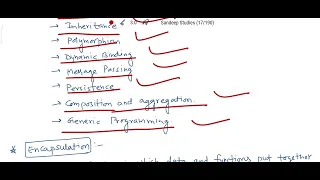 → Inheritance
Sandeep Studies (17/190)
→ Polymorphism
→ Dynamic Binding
→ Message Passing
→ Persistence
→ Composition and aggregation
→ Generic Programming
* Encapsulation :-
which data and functions put together